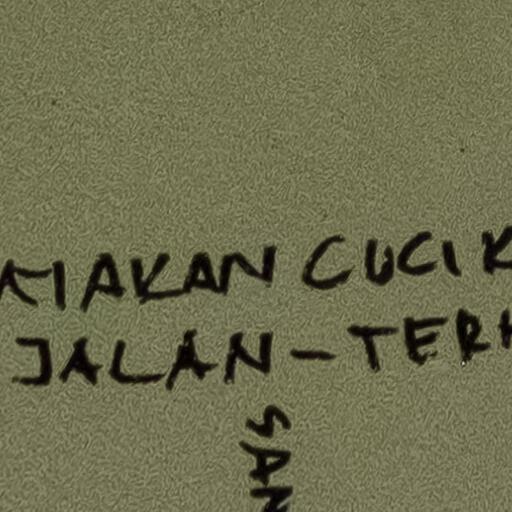 MAKAN CUCI K
JALAN-TER
SAN